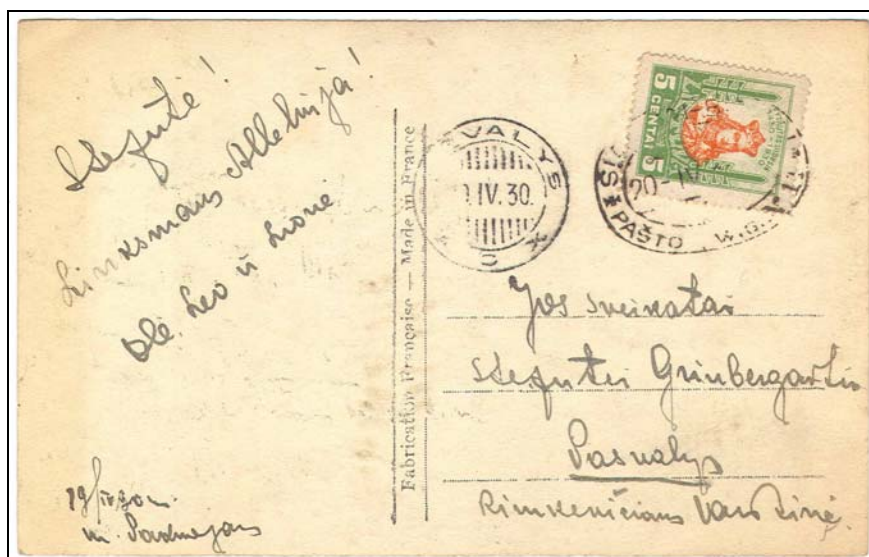 Stefutė!
Linksmans Alleluja!
Olė, Leo ir Lionė
19/IV 30 m.
Fabrication Française — Made in France
VALYS
IV. 30.
C
5 CENTAI 5
20-IV
PAŠTO W.G.
Jos sveikatai
Stefutei Grinbergaitei
Pasvalys
Rimkevičiaus Vaistinė.